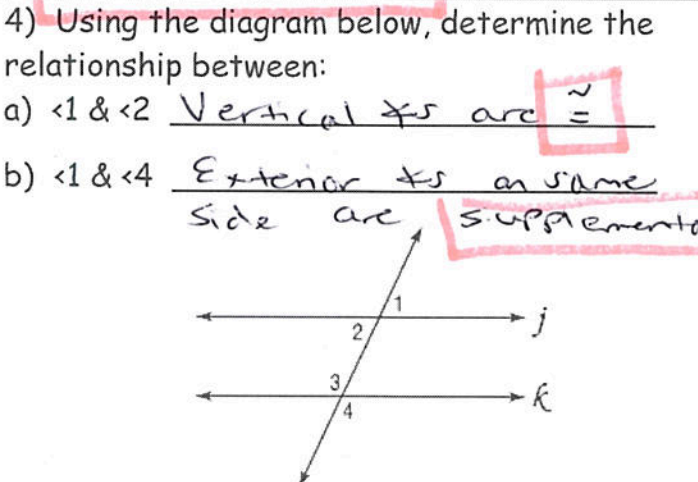 4) Using the diagram below, determine the
relationship between:
a) <1 & <2 Vertical ∡s are ≅
b) <1 & <4 Exterior ∡s on same
side are supplementa
1
j
2
3
k
4